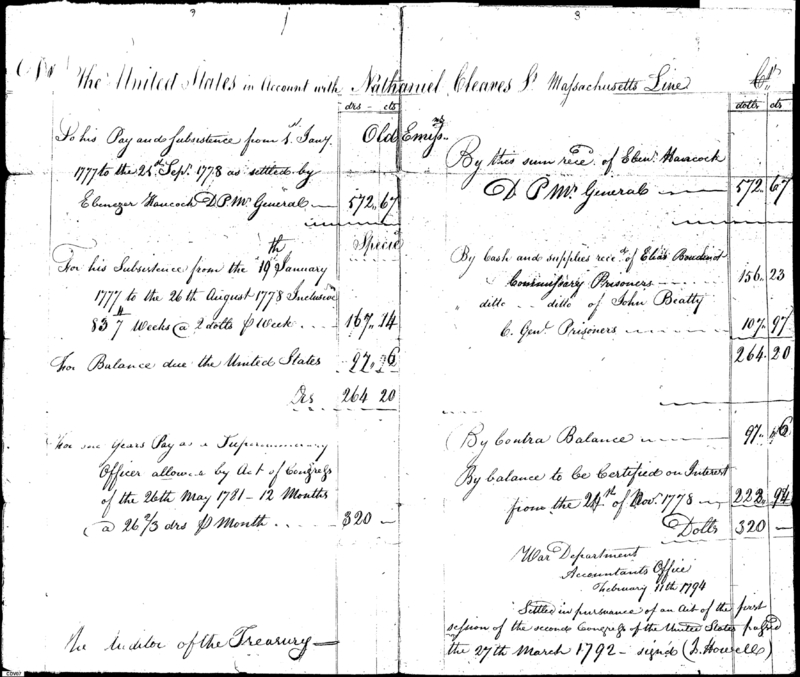 Drs The United States in Account with Nathaniel Cleaves Lt Massachusetts Line Crs
drs - cts
To his Pay and Subsistence from 1st Jany.
1777 to the 24th Sepr. 1778 as settled by
Ebenezer Hancock D P Mr General — 572,, 67
Old Emiss
Specie
For his Subsistence from the 19th January
1777 to the 26th August 1778 Inclusive
83 4/7 Weeks @ 2 dolls ⅌ Week . . . . 167,, 14
For Balance due the United States 97,, 6
Drs 264 20
For one Years Pay as a Supernumerary
Officer allowed by Act of Congress
of the 26th May 1781 — 12 Months
@ 26 2/3 drs ⅌ Month . . . . 320 —
The Auditor of the Treasury —
dolls cts
By this sum rece'd. of Ebenr. Hancock
D P Mr General — 572,, 67
By Cash and supplies rece'd. of Elias Boudinot
Commissary Prisoners — 156,, 23
" ditto . . ditto of John Beatty
C. Genl. Prisoners — 107,, 97
264. 20
By Contra Balance — 97,, 6
By balance to be Certified on Interest
from the 24th of Novr. 1778 — 222,, 94
Dolls 320 —
War Department
Accountants Office
February 11th 1794
Settled in pursuance of an Act of the first
session of the second Congress of the United States passed
the 27th March 1792 — signed (J. Howell)
CDV07